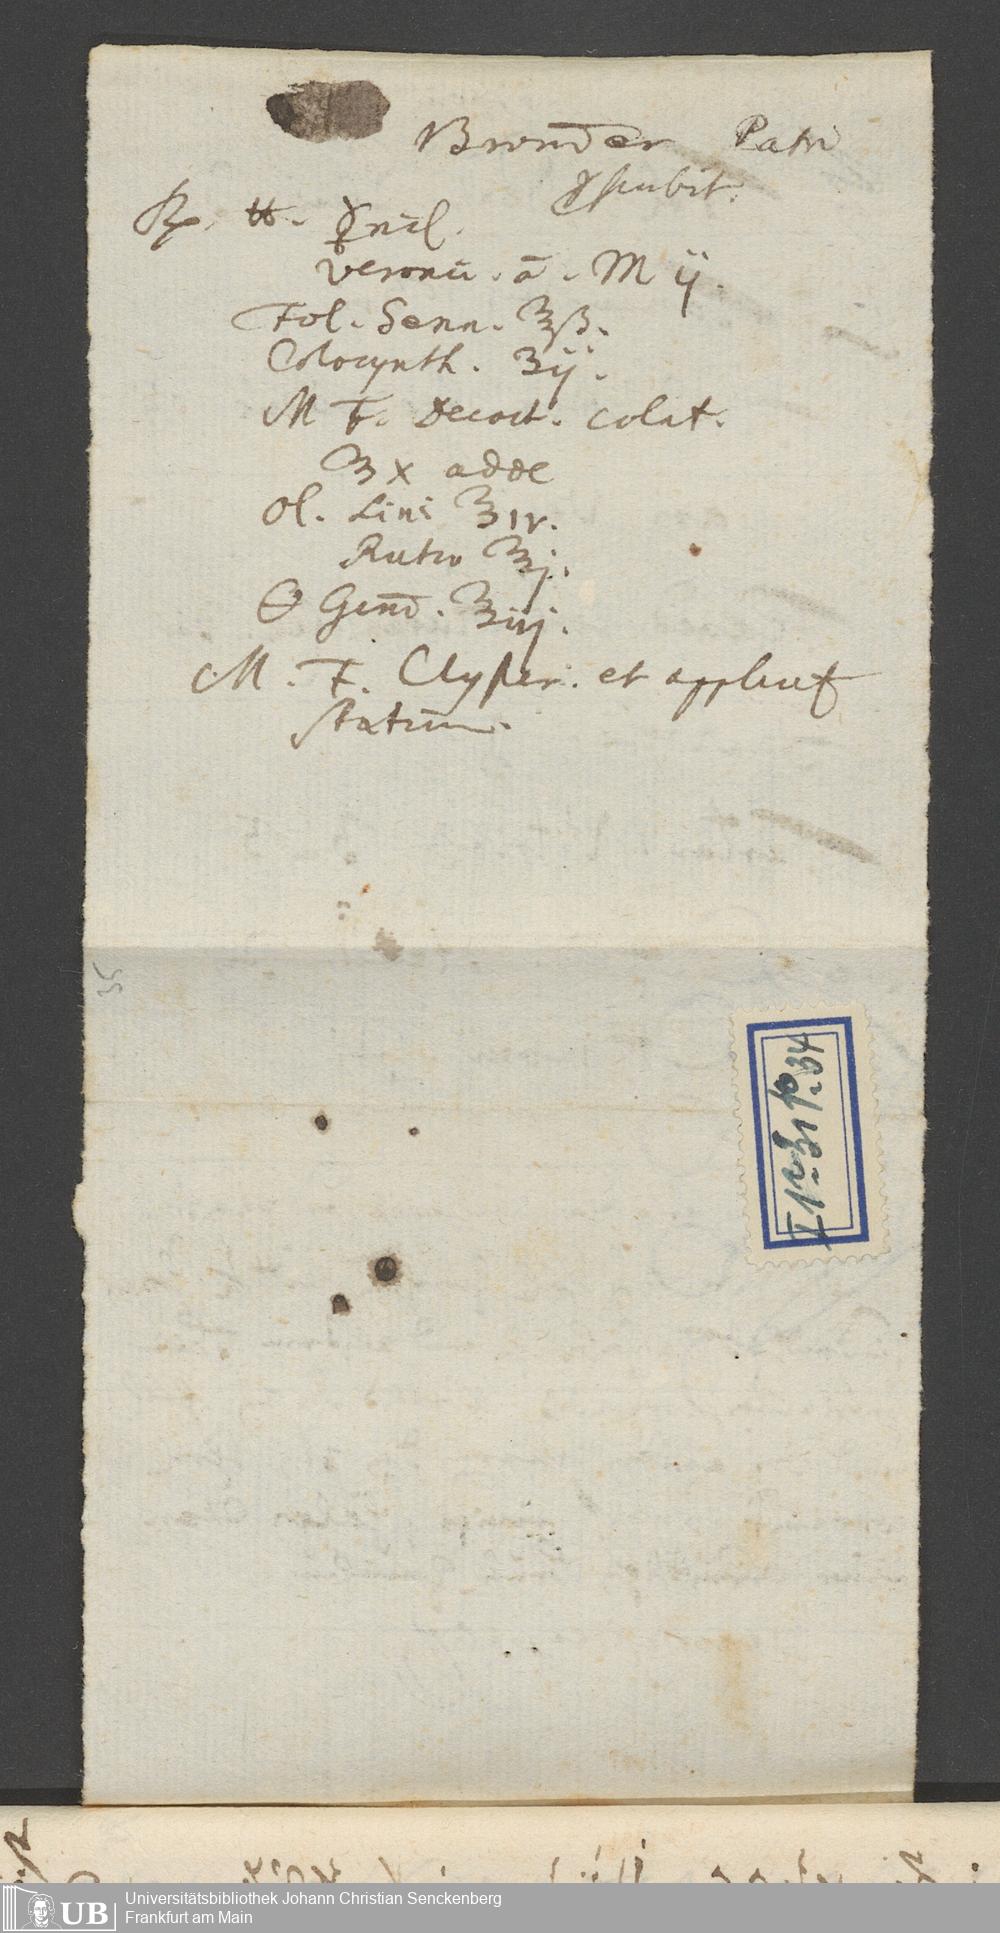 Bronder Patri
℞. tt. ☿rial.
Veronic. ā. M ij.
Fol. Senn. ℥ß.
Colocynth. ʒij.
M F. Decoct. colat.
℥x adde
Ol. Lini ℥iv.
Rutæ ℥j.
Gem. ʒiij.
M. F. Clyster. et applicet
statim.
Universitätsbibliothek Johann Christian Senckenberg
Frankfurt am Main
UB